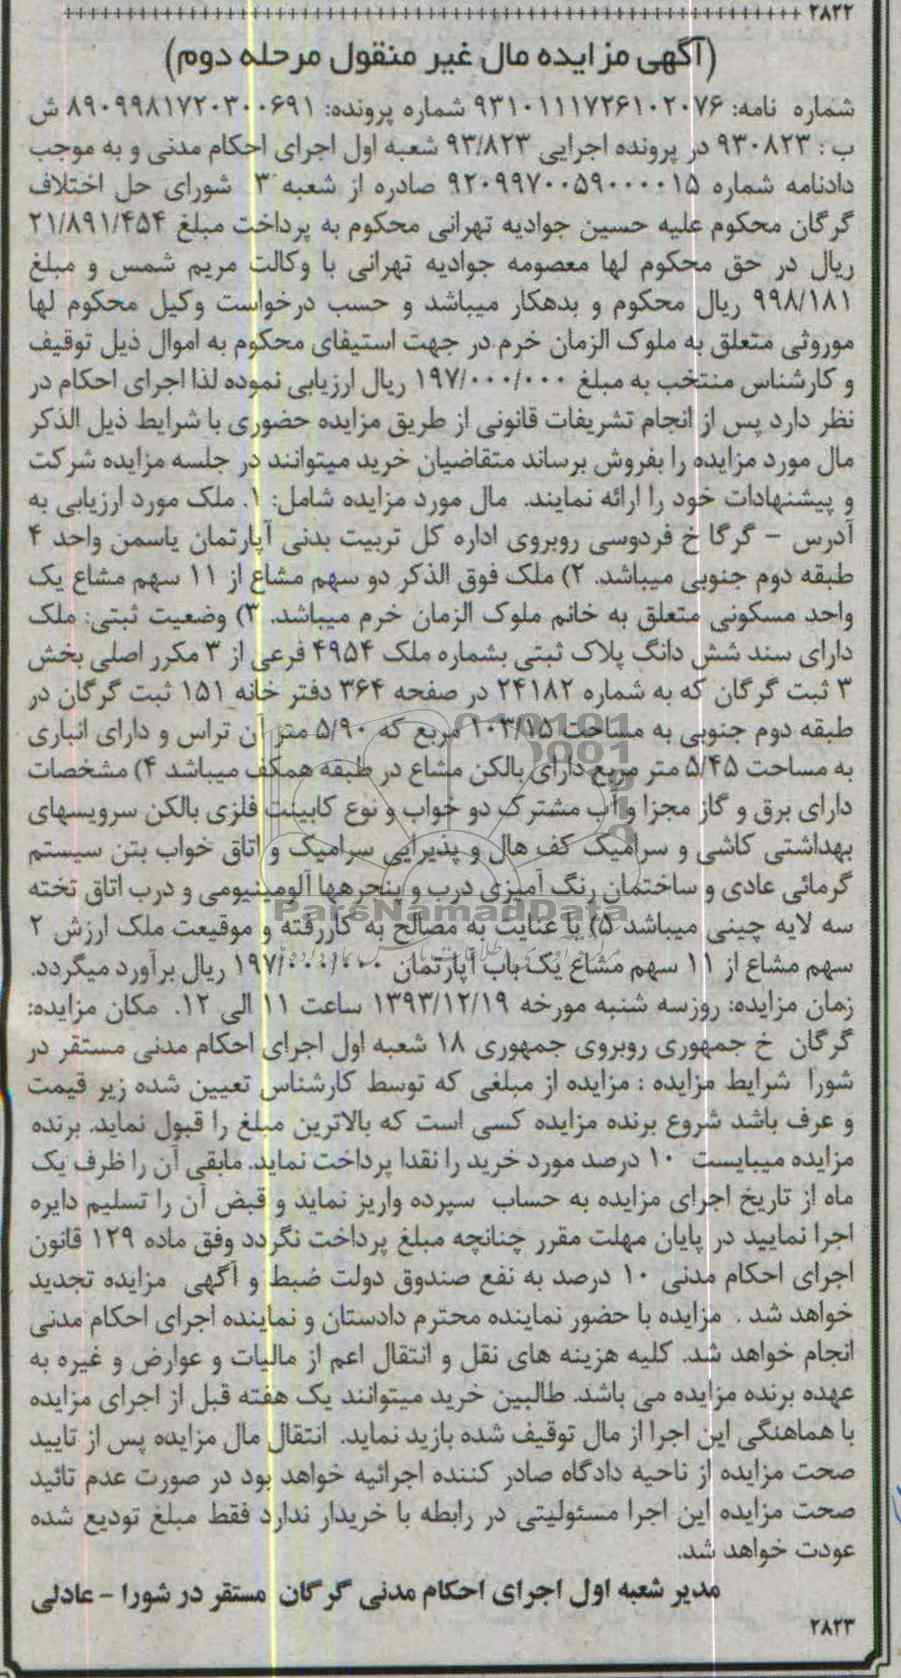 ۲۸۲۲
(آگهی مزایده مال غیر منقول مرحله دوم)
شماره نامه: ۹۳۱۰۱۱۱۷۲۶۱۰۲۰۷۶ شماره پرونده: ۸۹۰۹۹۸۱۷۲۰۳۰۰۶۹۱ ش
ب : ۹۳۰۸۲۳ در پرونده اجرایی ۹۳/۸۲۳ شعبه اول اجرای احکام مدنی و به موجب
دادنامه شماره ۹۲۰۹۹۷۰۰۵۹۰۰۰۰۱۵ صادره از شعبه ۳ شورای حل اختلاف
گرگان محکوم علیه حسین جوادیه تهرانی محکوم به پرداخت مبلغ ۲۱/۸۹۱/۴۵۴
ریال در حق محکوم لها معصومه جوادیه تهرانی با وکالت مریم شمس و مبلغ
۹۹۸/۱۸۱ ریال محکوم و بدهکار میباشد و حسب درخواست وکیل محکوم لها
موروثی متعلق به ملوک الزمان خرم در جهت استیفای محکوم به اموال ذیل توقیف
و کارشناس منتخب به مبلغ ۱۹۷/۰۰۰/۰۰۰ ریال ارزیابی نموده لذا اجرای احکام در
نظر دارد پس از انجام تشریفات قانونی از طریق مزایده حضوری با شرایط ذیل الذکر
مال مورد مزایده را بفروش برساند متقاضیان خرید میتوانند در جلسه مزایده شرکت
و پیشنهادات خود را ارائه نمایند. مال مورد مزایده شامل: ۱. ملک مورد ارزیابی به
آدرس – گرگا خ فردوسی روبروی اداره کل تربیت بدنی آپارتمان یاسمن واحد ۴
طبقه دوم جنوبی میباشد. ۲) ملک فوق الذکر دو سهم مشاع از ۱۱ سهم مشاع یک
واحد مسکونی متعلق به خانم ملوک الزمان خرم میباشد. ۳) وضعیت ثبتی: ملک
دارای سند شش دانگ پلاک ثبتی بشماره ملک ۴۹۵۴ فرعی از ۳ مکرر اصلی بخش
۳ ثبت گرگان که به شماره ۲۴۱۸۲ در صفحه ۳۶۴ دفتر خانه ۱۵۱ ثبت گرگان در
طبقه دوم جنوبی به مساحت ۱۰۳/۱۵ مربع که ۵/۹۰ متر آن تراس و دارای انباری
به مساحت ۵/۴۵ متر مربع دارای بالکن مشاع در طبقه همکف میباشد ۴) مشخصات
دارای برق و گاز مجزا و آب مشترک دو خواب و نوع کابینت فلزی بالکن سرویسهای
بهداشتی کاشی و سرامیک کف هال و پذیرایی سرامیک و اتاق خواب بتن سیستم
گرمائی عادی و ساختمان رنگ آمیزی درب و پنجرهها آلومینیومی و درب اتاق تخته
ParsNamadData
سه لایه چینی میباشد ۵) با عنایت به مصالح به کاررفته و موقیعت ملک ارزش ۲
سهم مشاع از ۱۱ سهم مشاع یک باب آپارتمان ۱۹۷/۰۰۰/۰۰۰ ریال برآورد میگردد.
زمان مزایده: روزسه شنبه مورخه ۱۳۹۳/۱۲/۱۹ ساعت ۱۱ الی ۱۲. مکان مزایده:
گرگان خ جمهوری روبروی جمهوری ۱۸ شعبه اول اجرای احکام مدنی مستقر در
شورا شرایط مزایده : مزایده از مبلغی که توسط کارشناس تعیین شده زیر قیمت
و عرف باشد شروع برنده مزایده کسی است که بالاترین مبلغ را قبول نماید. برنده
مزایده میبایست ۱۰ درصد مورد خرید را نقدا پرداخت نماید. مابقی آن را ظرف یک
ماه از تاریخ اجرای مزایده به حساب سپرده واریز نماید و قبض آن را تسلیم دایره
اجرا نمایید در پایان مهلت مقرر چنانچه مبلغ پرداخت نگردد وفق ماده ۱۲۹ قانون
اجرای احکام مدنی ۱۰ درصد به نفع صندوق دولت ضبط و آگهی مزایده تجدید
خواهد شد . مزایده با حضور نماینده محترم دادستان و نماینده اجرای احکام مدنی
انجام خواهد شد. کلیه هزینه های نقل و انتقال اعم از مالیات و عوارض و غیره به
عهده برنده مزایده می باشد. طالبین خرید میتوانند یک هفته قبل از اجرای مزایده
با هماهنگی این اجرا از مال توقیف شده بازید نماید. انتقال مال مزایده پس از تایید
صحت مزایده از ناحیه دادگاه صادر کننده اجرائیه خواهد بود در صورت عدم تائید
صحت مزایده این اجرا مسئولیتی در رابطه با خریدار ندارد فقط مبلغ تودیع شده
عودت خواهد شد.
مدیر شعبه اول اجرای احکام مدنی گرگان مستقر در شورا - عادلی
۲۸۲۳